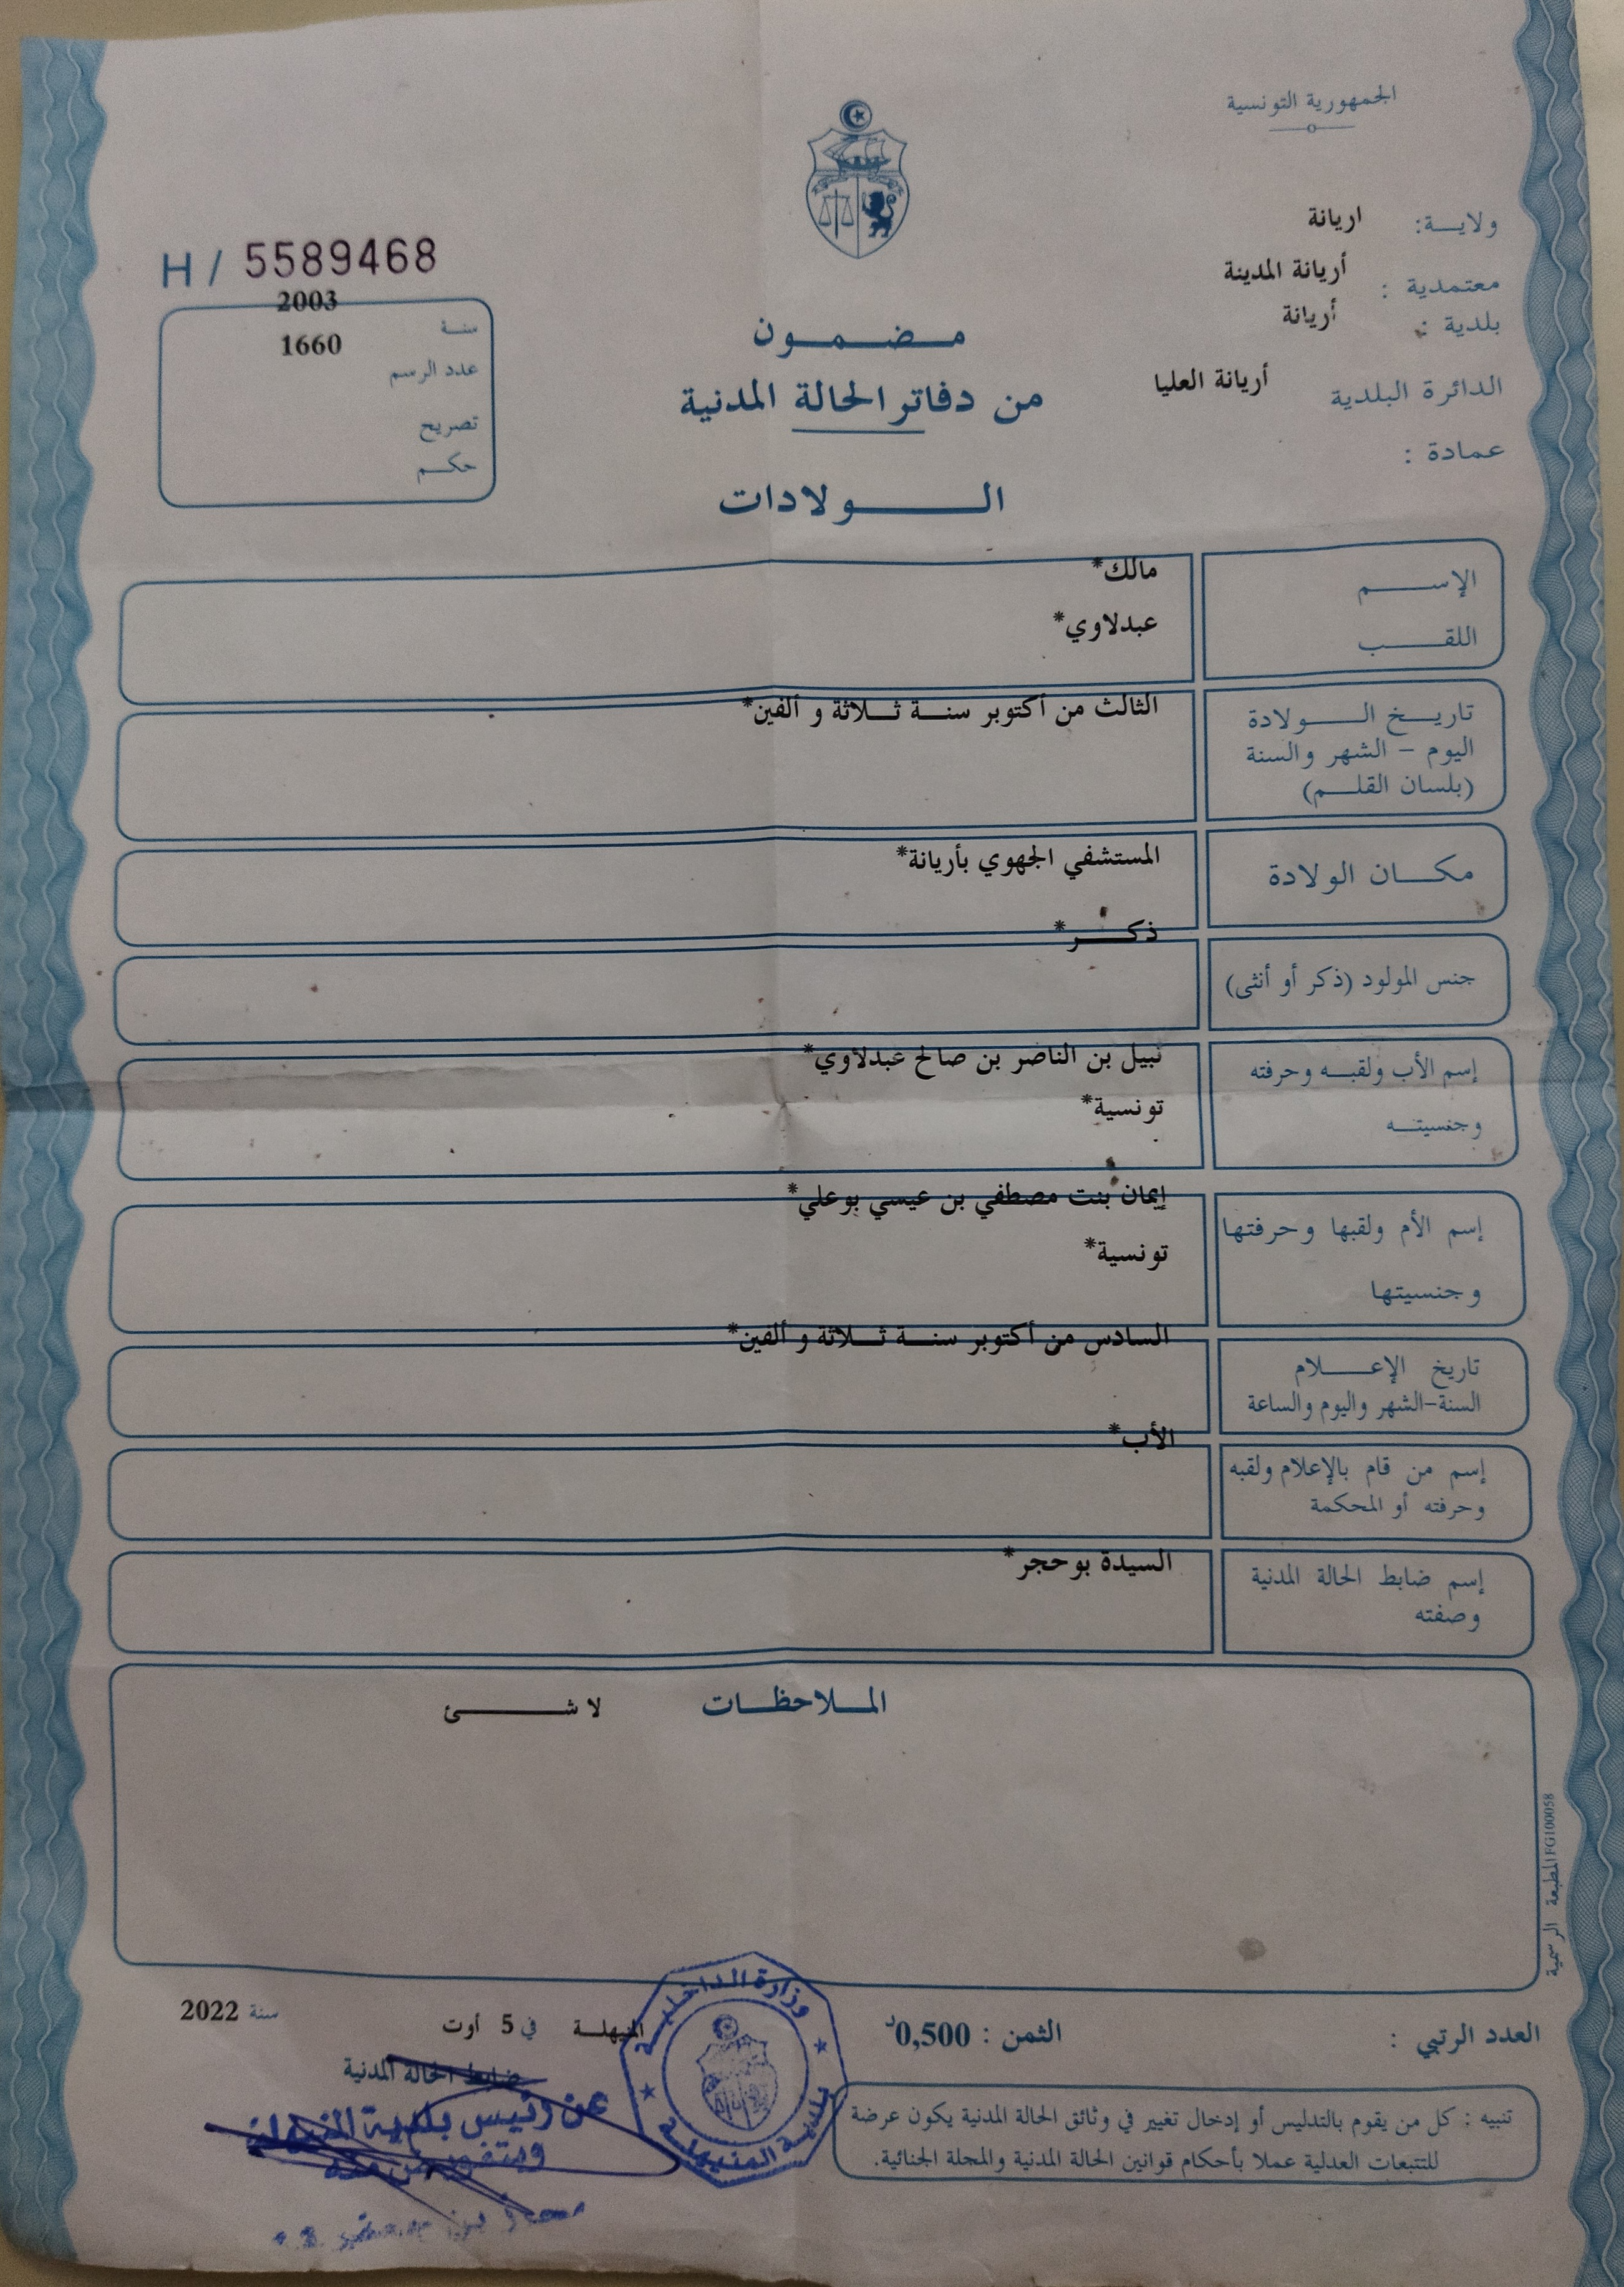 الجمهورية التونسية
ولايـــة: اريانة
معتمدية : أريانة المدينة
بلدية : أريانة
الدائرة البلدية أريانة العليا
عمادة :
H / 5589468
سنـة 2003
عدد الرسم 1660
تصريح
حكـــم
مـــضـــمـــون
من دفاتر الحالة المدنية
الـــــــولادات
الإســـــــم مالك*
اللقـــــــب عبدلاوي*
تاريـــخ الـــــولادة الثالث من أكتوبر سنـــة ثـــلاثة و ألفين*
اليوم – الشهر والسنة
(بلسان القلـــم)
مكـــان الولادة المستشفي الجهوي بأريانة*
جنس المولود (ذكر أو أنثى) ذكـــــر*
إسم الأب ولقبـــه وحرفته نبيل بن الناصر بن صالح عبدلاوي*
وجنسيتـــه تونسية*
إسم الأم ولقبها وحرفتها إيمان بنت مصطفي بن عيسي بوعلي*
وجنسيتها تونسية*
تاريخ الإعـــــلام السادس من أكتوبر سنـــة ثـــلاثة و ألفين*
السنة-الشهر واليوم والساعة
إسم من قام بالإعلام ولقبه الأب*
وحرفته أو المحكمة
إسم ضابط الحالة المدنية السيدة بوحجر*
وصفته
المـــلاحظـــات لا شـــــــئ
المطبعة الرسمية FG100058
العدد الرتبي :
الثمن : 0,500د
المنيهلـــة في 5 أوت سنة 2022
ضابط الحالة المدنية
عن رئيس بلدية المنيهلة
وبتفويض منه
وزارة الداخليـــة
بلديـــة المنيهلـــة
تنبيه : كل من يقوم بالتدليس أو إدخال تغيير في وثائق الحالة المدنية يكون عرضة
للتتبعات العدلية عملا بأحكام قوانين الحالة المدنية والمجلة الجنائية.